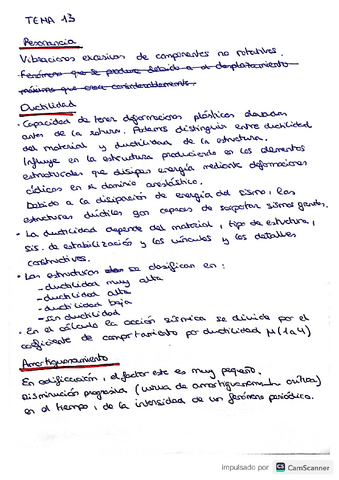 TEMA 13
Resonancia
Vibraciones excesivas de componentes no rotativas.
Fenómeno que se produce debido a de desplazamiento
máximo que crece considerablemente.
Ductilidad
· Capacidad de tener deformaciones plásticas elevadas
antes de la rotura. Podemos distinguir entre ductilidad
del material y ductilidad de la estructura.
Influye en la estructura produciendo en los elementos
estructurales que disipan energía mediante deformaciones
cíclicas en el dominio anelástico.
Debido a la disipación de energía del sismo, las
estructuras dúctiles son capaces de soportar sismos grandes.
· La ductilidad depende del material, tipo de estructura,
sis. de estabilización y los vínculos y los detalles
constructivos.
· Las estructuras se clasifican en :
- ductilidad muy alta
- ductilidad alta
- ductilidad baja
- sin ductilidad
· En el cálculo la acción sísmica se divide por el
coeficiente de comportamiento por ductilidad μ (1 a 4)
Amortiguamiento
En edificación, el factor este es muy pequeño.
Disminución progresiva, (curva de amortiguamiento crítica)
en el tiempo, de la intensidad de un fenómeno periódico.
impulsado por CS CamScanner